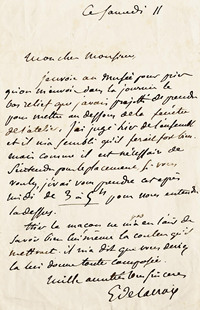 Ce Samedi 11
Mon cher Monsieur
J'envoie au Musée pour prier
qu'on m'envoie dans la journée le
bas relief que j'avais projeté de prendre
pour mettre au dessous de la fenêtre
de l'atelier. J'ai jugé hier de l'ensemble
et il m'a semblé qu'il ferait fort bien.
mais comme il est nécessaire de
s'entendre pour le placement, si vous
voulez, j'irai vous prendre cet après
midi de 3 à 5 h pour nous entendre
là dessus.
Hier le maçon ne m'a en fait de
savoir bien lui même la couleur qu'il
mettrait. il m'a dit que vous deviez
la lui donner toute composée.
Mille amitiés bien sincères
E. Delacroix